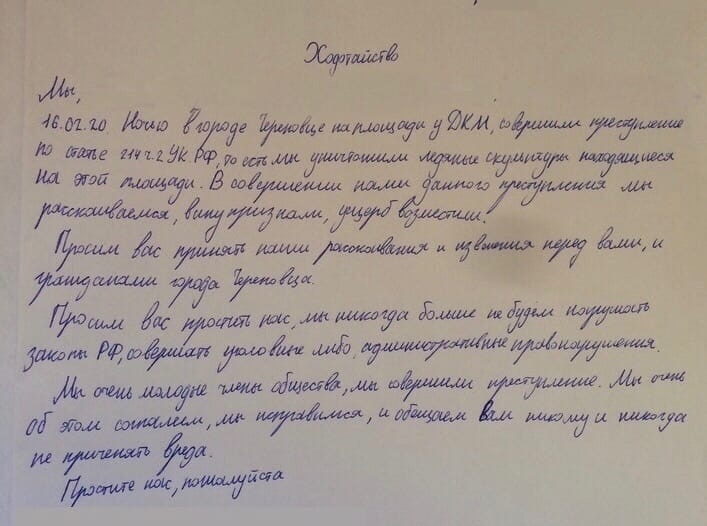 Ходотайство
Мы,
16.02.20. Ночью в городе Череповце на площади у ДКМ, совершили преступление
по статье 214 ч.2 УК РФ, то есть мы уничтожили ледяные скульптуры находящиеся
на этой площади. В совершении нами данного преступления мы
расскаиваемся, вину признали, ущерб возместили.
Просим вас принять наши расскаивания и извинения перед вами, и
гражданами города Череповца.
Просим вас простить нас, мы никогда больше не будем нарушать
законы РФ, совершать уголовные либо административные правонарушения.
Мы очень молодые члены общества, мы совершили преступление. Мы очень
об этом сожалеем, мы исправимся, и обещаем вам никому и никогда
не приченять вреда.
Простите нас, пожалуйста